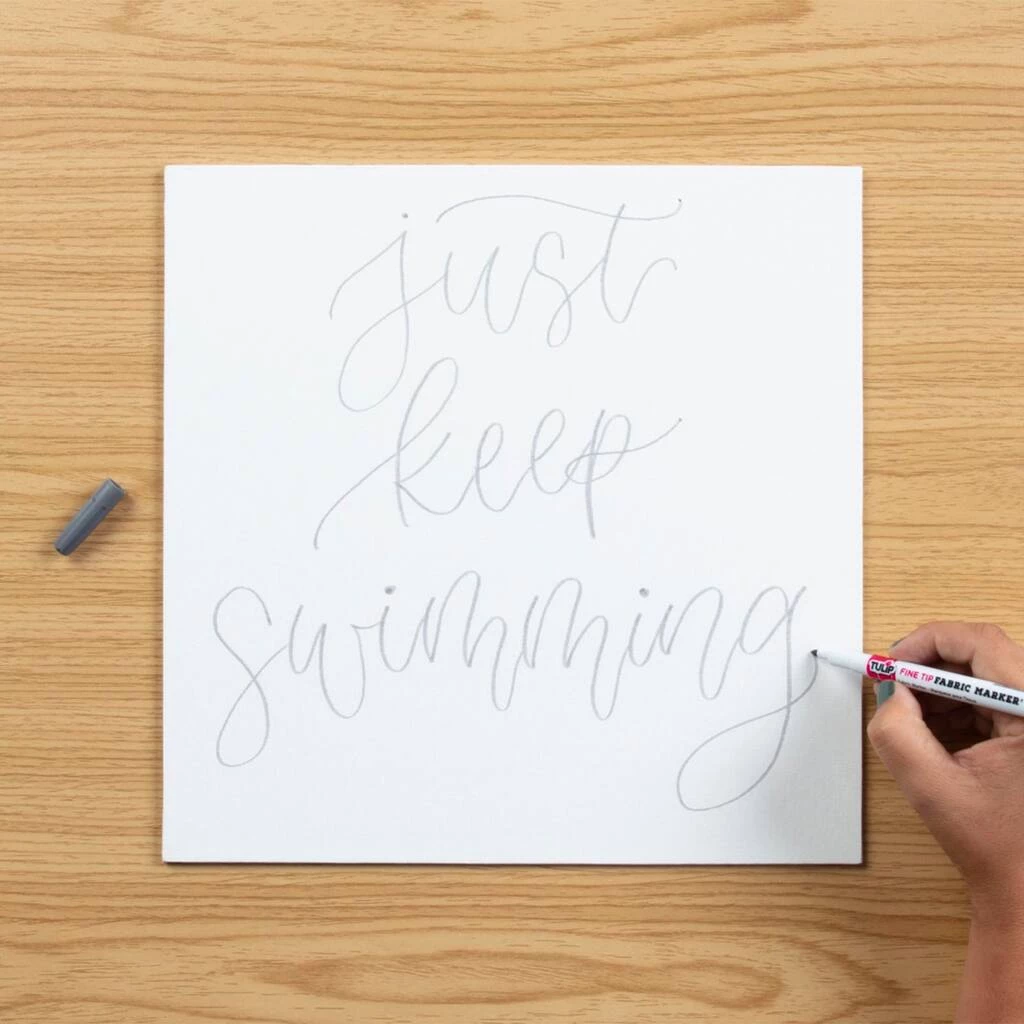 just
keep
swimming
TULIP FINE TIP FABRIC MARKER